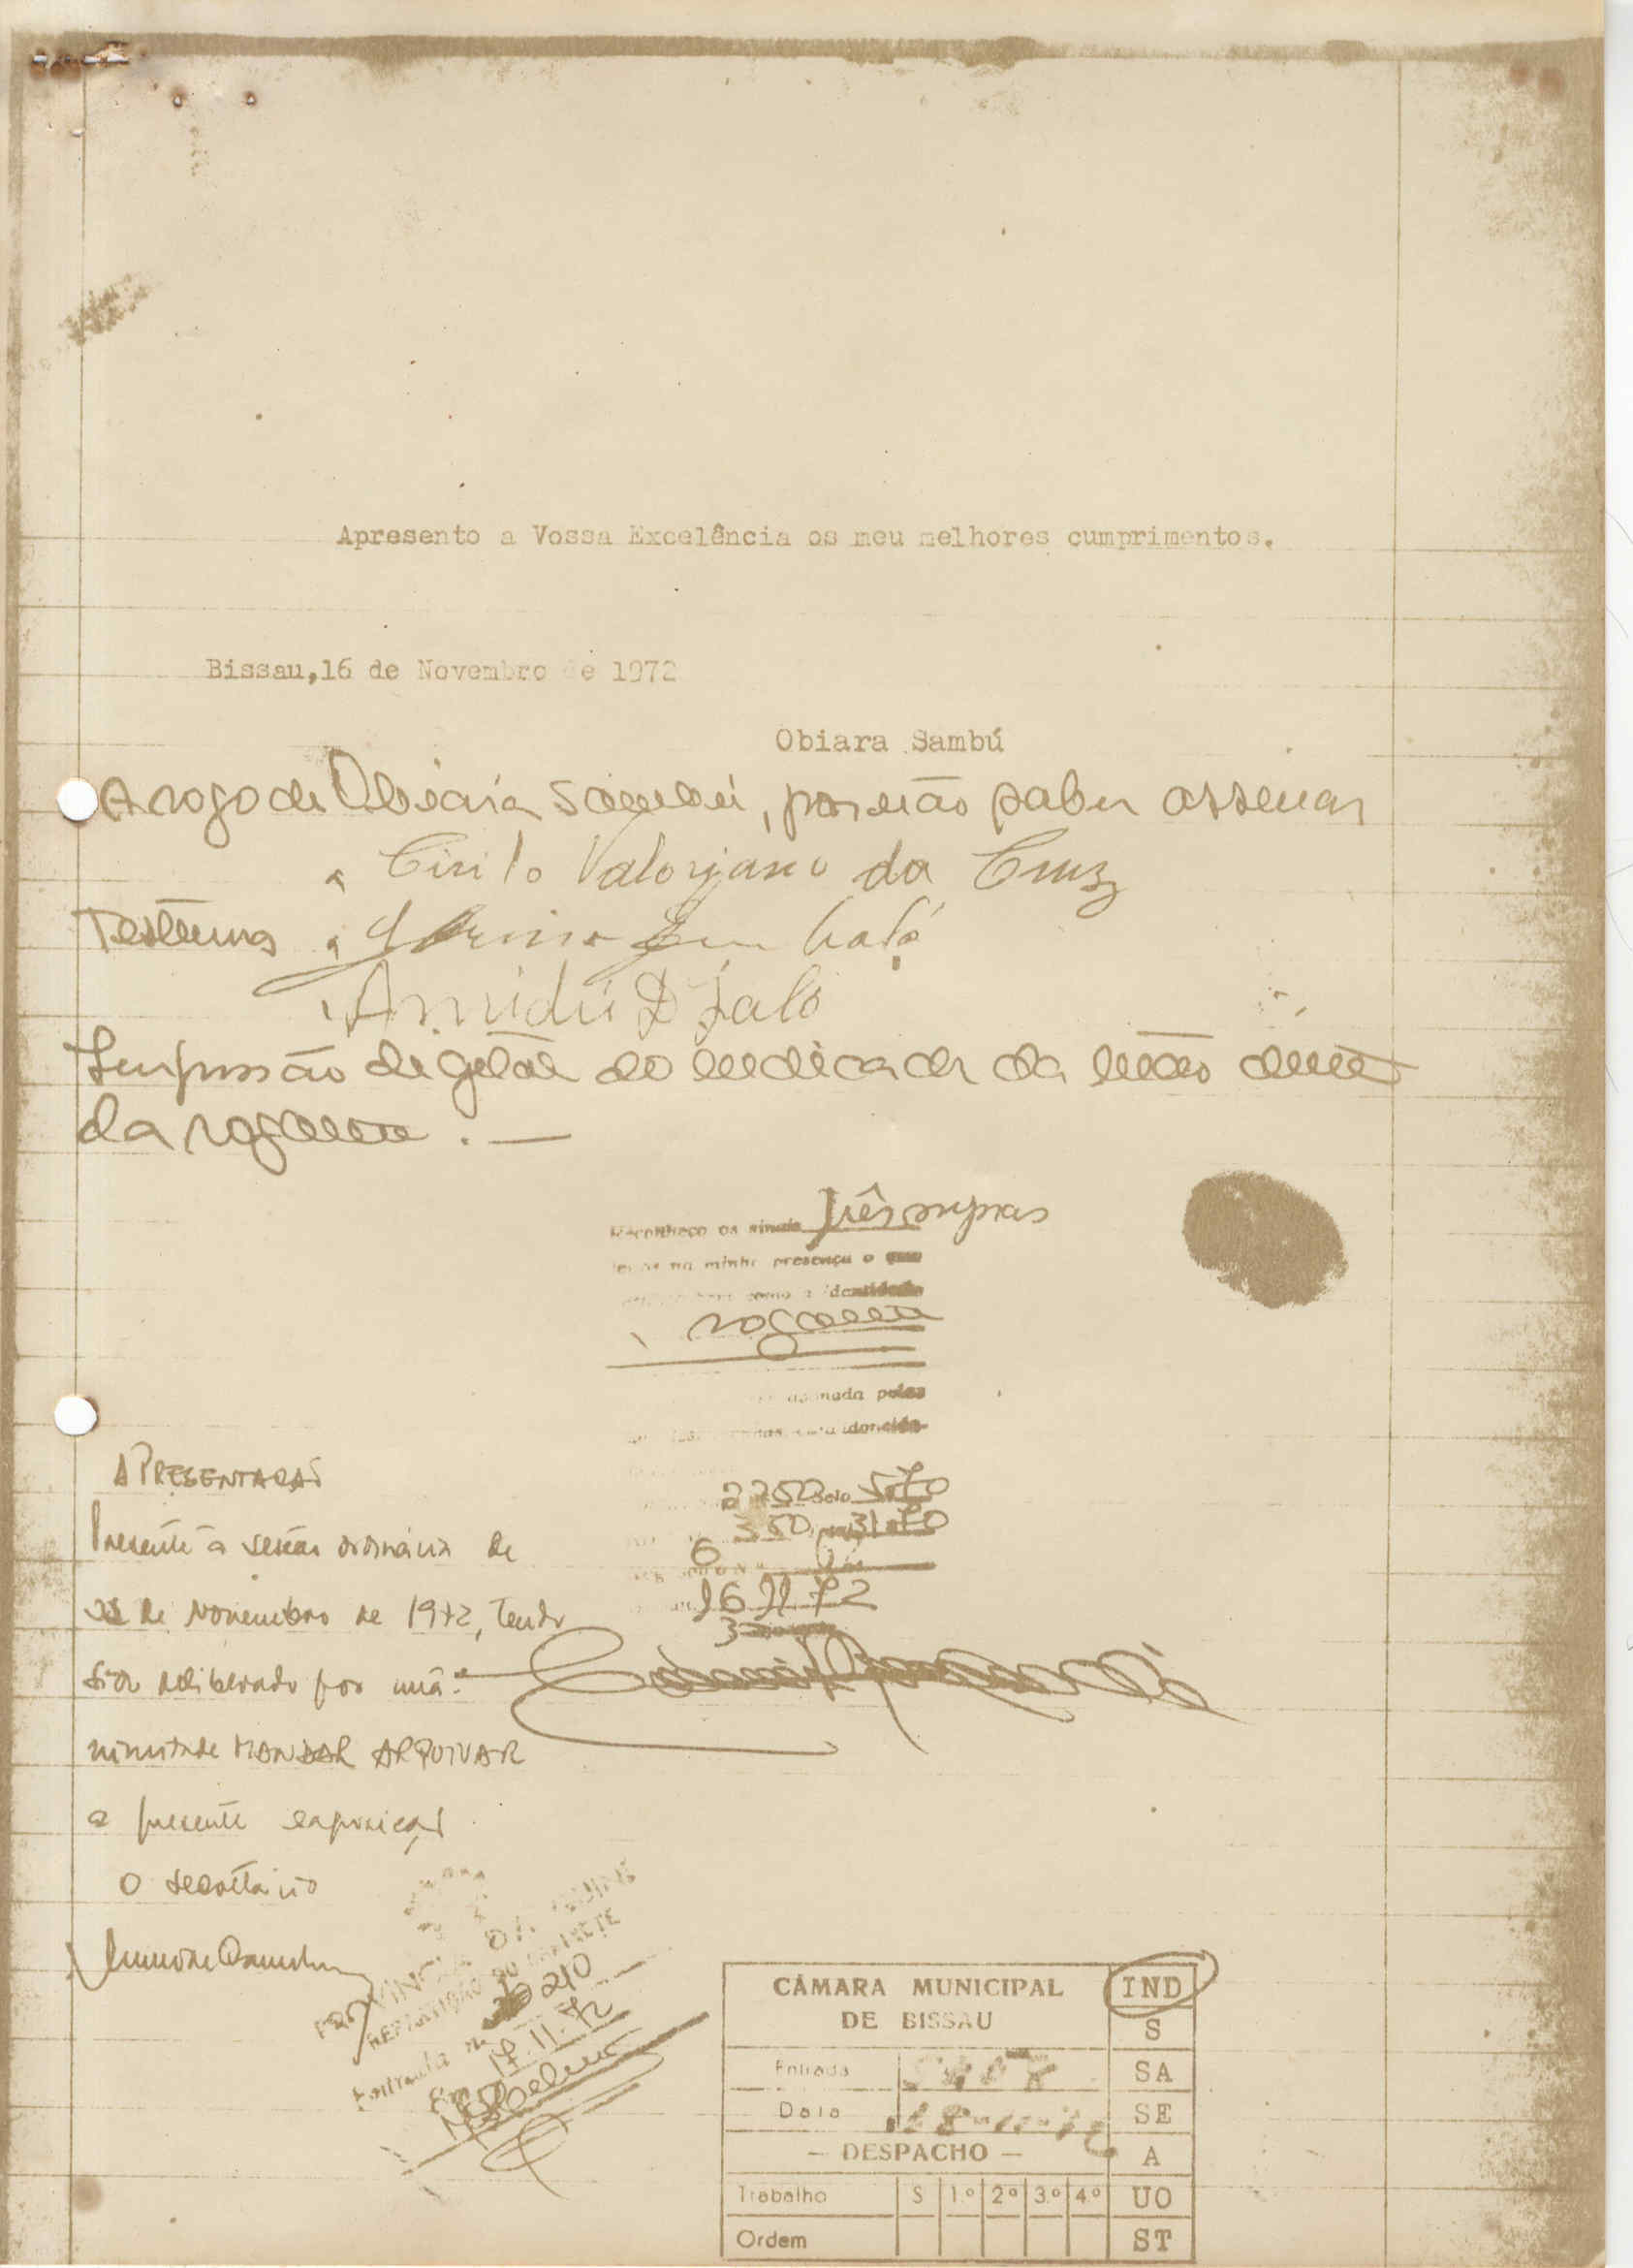 Apresento a Vossa Excelência os meu melhores cumprimentos.
Bissau,16 de Novembro de 1972
Obiara Sambú
A rogo de Obiara Sambú, por não saber assinar
Cirilo Valoriano da Cruz
Testemus
Amidú Djaló
Impressão digital do indicador da mão direita
da rogante. —
Reconheço os sinais três supras
na minha presença o que
como a identidade
rogante
assinada pelas
idoneida
2250 Selo 5.70
350 31.70
6
16 11 72
APRESENTAÇÃO
Presente à sessão ordinária de
de Novembro de 1972, tendo
sido deliberado por una-
nimidade MANDAR ARQUIVAR
a presente exposição
O Secretário
PROVINCIA DA GUINÉ
REPARTIÇÃO DO GABINETE
Entrada nº 210
Em 17.11.72
CÂMARA MUNICIPAL IND
DE BISSAU S
Entrada SA
Data 18-11-72 SE
— DESPACHO — A
Trabalho S 1.º 2º 3.º 4.º UO
Ordem ST